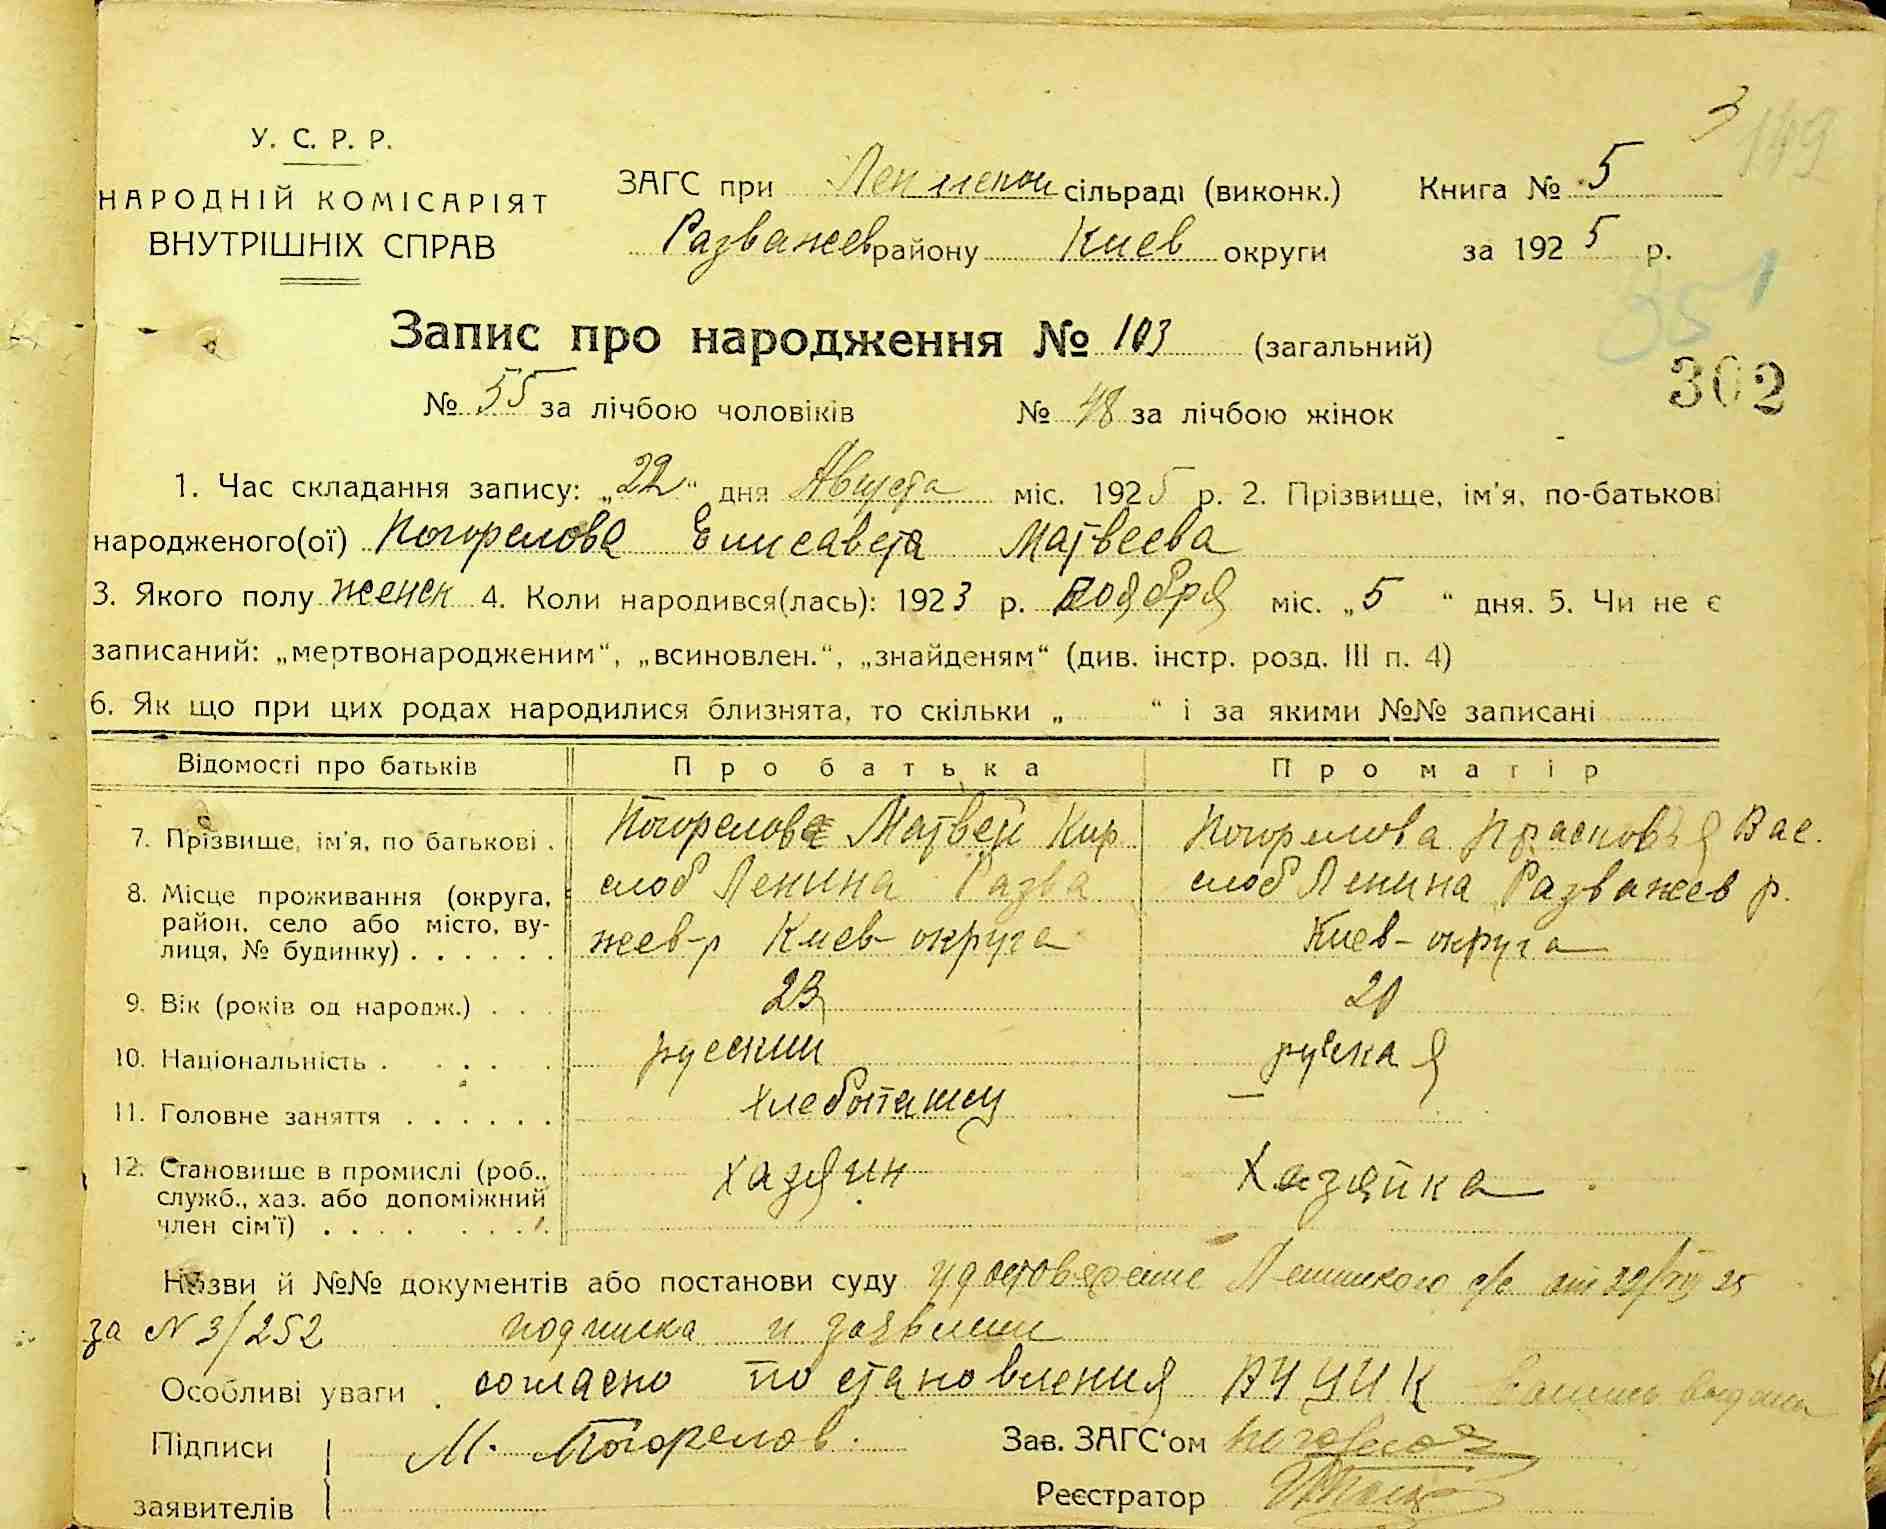 3 149
У. С. Р. Р.
НАРОДНІЙ КОМІСАРІЯТ
ВНУТРІШНІХ СПРАВ
ЗАГС при сільраді (виконк.) Книга № 5
Разважев району Киев округи за 1925 р.
351
Запис про народження № 103 (загальний)
302
№ 55 за лічбою чоловіків № 48 за лічбою жінок
1. Час складання запису: „22“ дня Августа міс. 1925 р. 2. Прізвище, ім'я, по-батькові
народженого(ої) Погорелова Елисавета Матвеева
3. Якого полу женск 4. Коли народився(лась): 1923 р. ноября міс. „5 “ дня. 5. Чи не є
записаний: „мертвонародженим“, „всиновлен.“, „знайденям“ (див. інстр. розд. III п. 4)
6. Як що при цих родах народилися близнята, то скільки „ “ і за якими №№ записані
Відомості про батьків Про батька Про матір
7. Прізвище, ім'я, по батькові . Погорелов Матвей Кир Погорелова Прасковья Вас.
8. Місце проживання (округа, слоб Ленина Разва слоб Ленина Разважев р.
район, село або місто, ву-
лиця, № будинку) . . . . . . жев-р Киев-округа Киев-округа
9. Вік (років од народж.) . . . 23 20
10. Національність . . . . . русский русская
11. Головне заняття . . . . . . хлебопашец —
12. Становище в промислі (роб.,
служб., хаз. або допоміжний хазяин Хазяйка
член сім'ї) . . . . . . . .
Назви й №№ документів або постанови суду удостоверение Ленинского с/с от 22/VIII 25
за N 3/252 подписка и заявлени
Особливі уваги согласно постановления ВУЦИК
Підписи М. Погорелов. Зав. ЗАГС'ом
заявителів Реєстратор